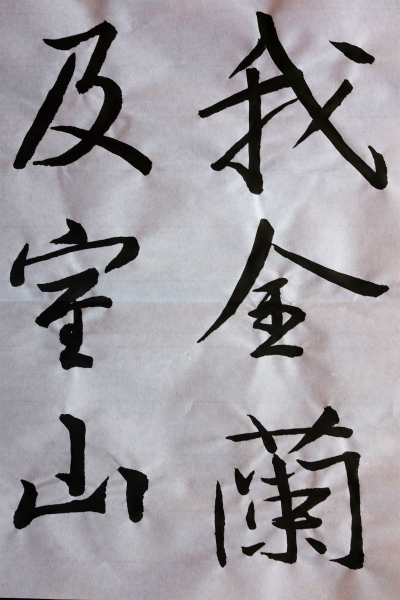 我金蘭
及室山